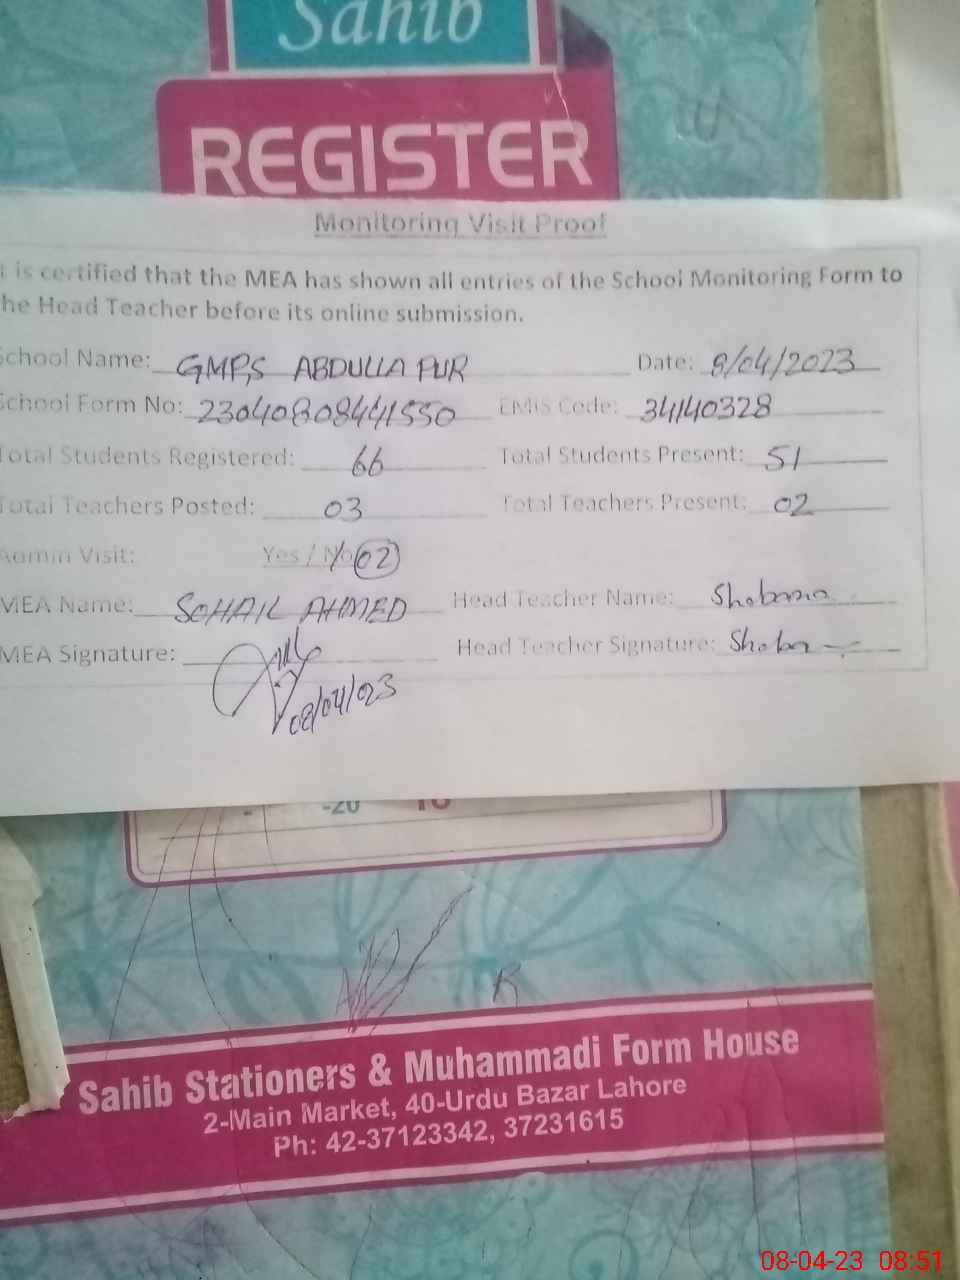 Sahib
REGISTER
Monitoring Visit Proof
t is certified that the MEA has shown all entries of the School Monitoring Form to
he Head Teacher before its online submission.
School Name: GMPS ABDULLA PUR Date: 8/04/2023
School Form No: 23040808441550 EMIS Code: 34140328
Total Students Registered: 66 Total Students Present: 51
Total Teachers Posted: 03 Total Teachers Present: 02
Admin Visit: Yes / No 02
MEA Name: SOHAIL AHMED Head Teacher Name: Shobana
MEA Signature: Head Teacher Signature: Shoba
08/04/23
-20 10
R
Sahib Stationers & Muhammadi Form House
2-Main Market, 40-Urdu Bazar Lahore
Ph: 42-37123342, 37231615
08-04-23 08:51